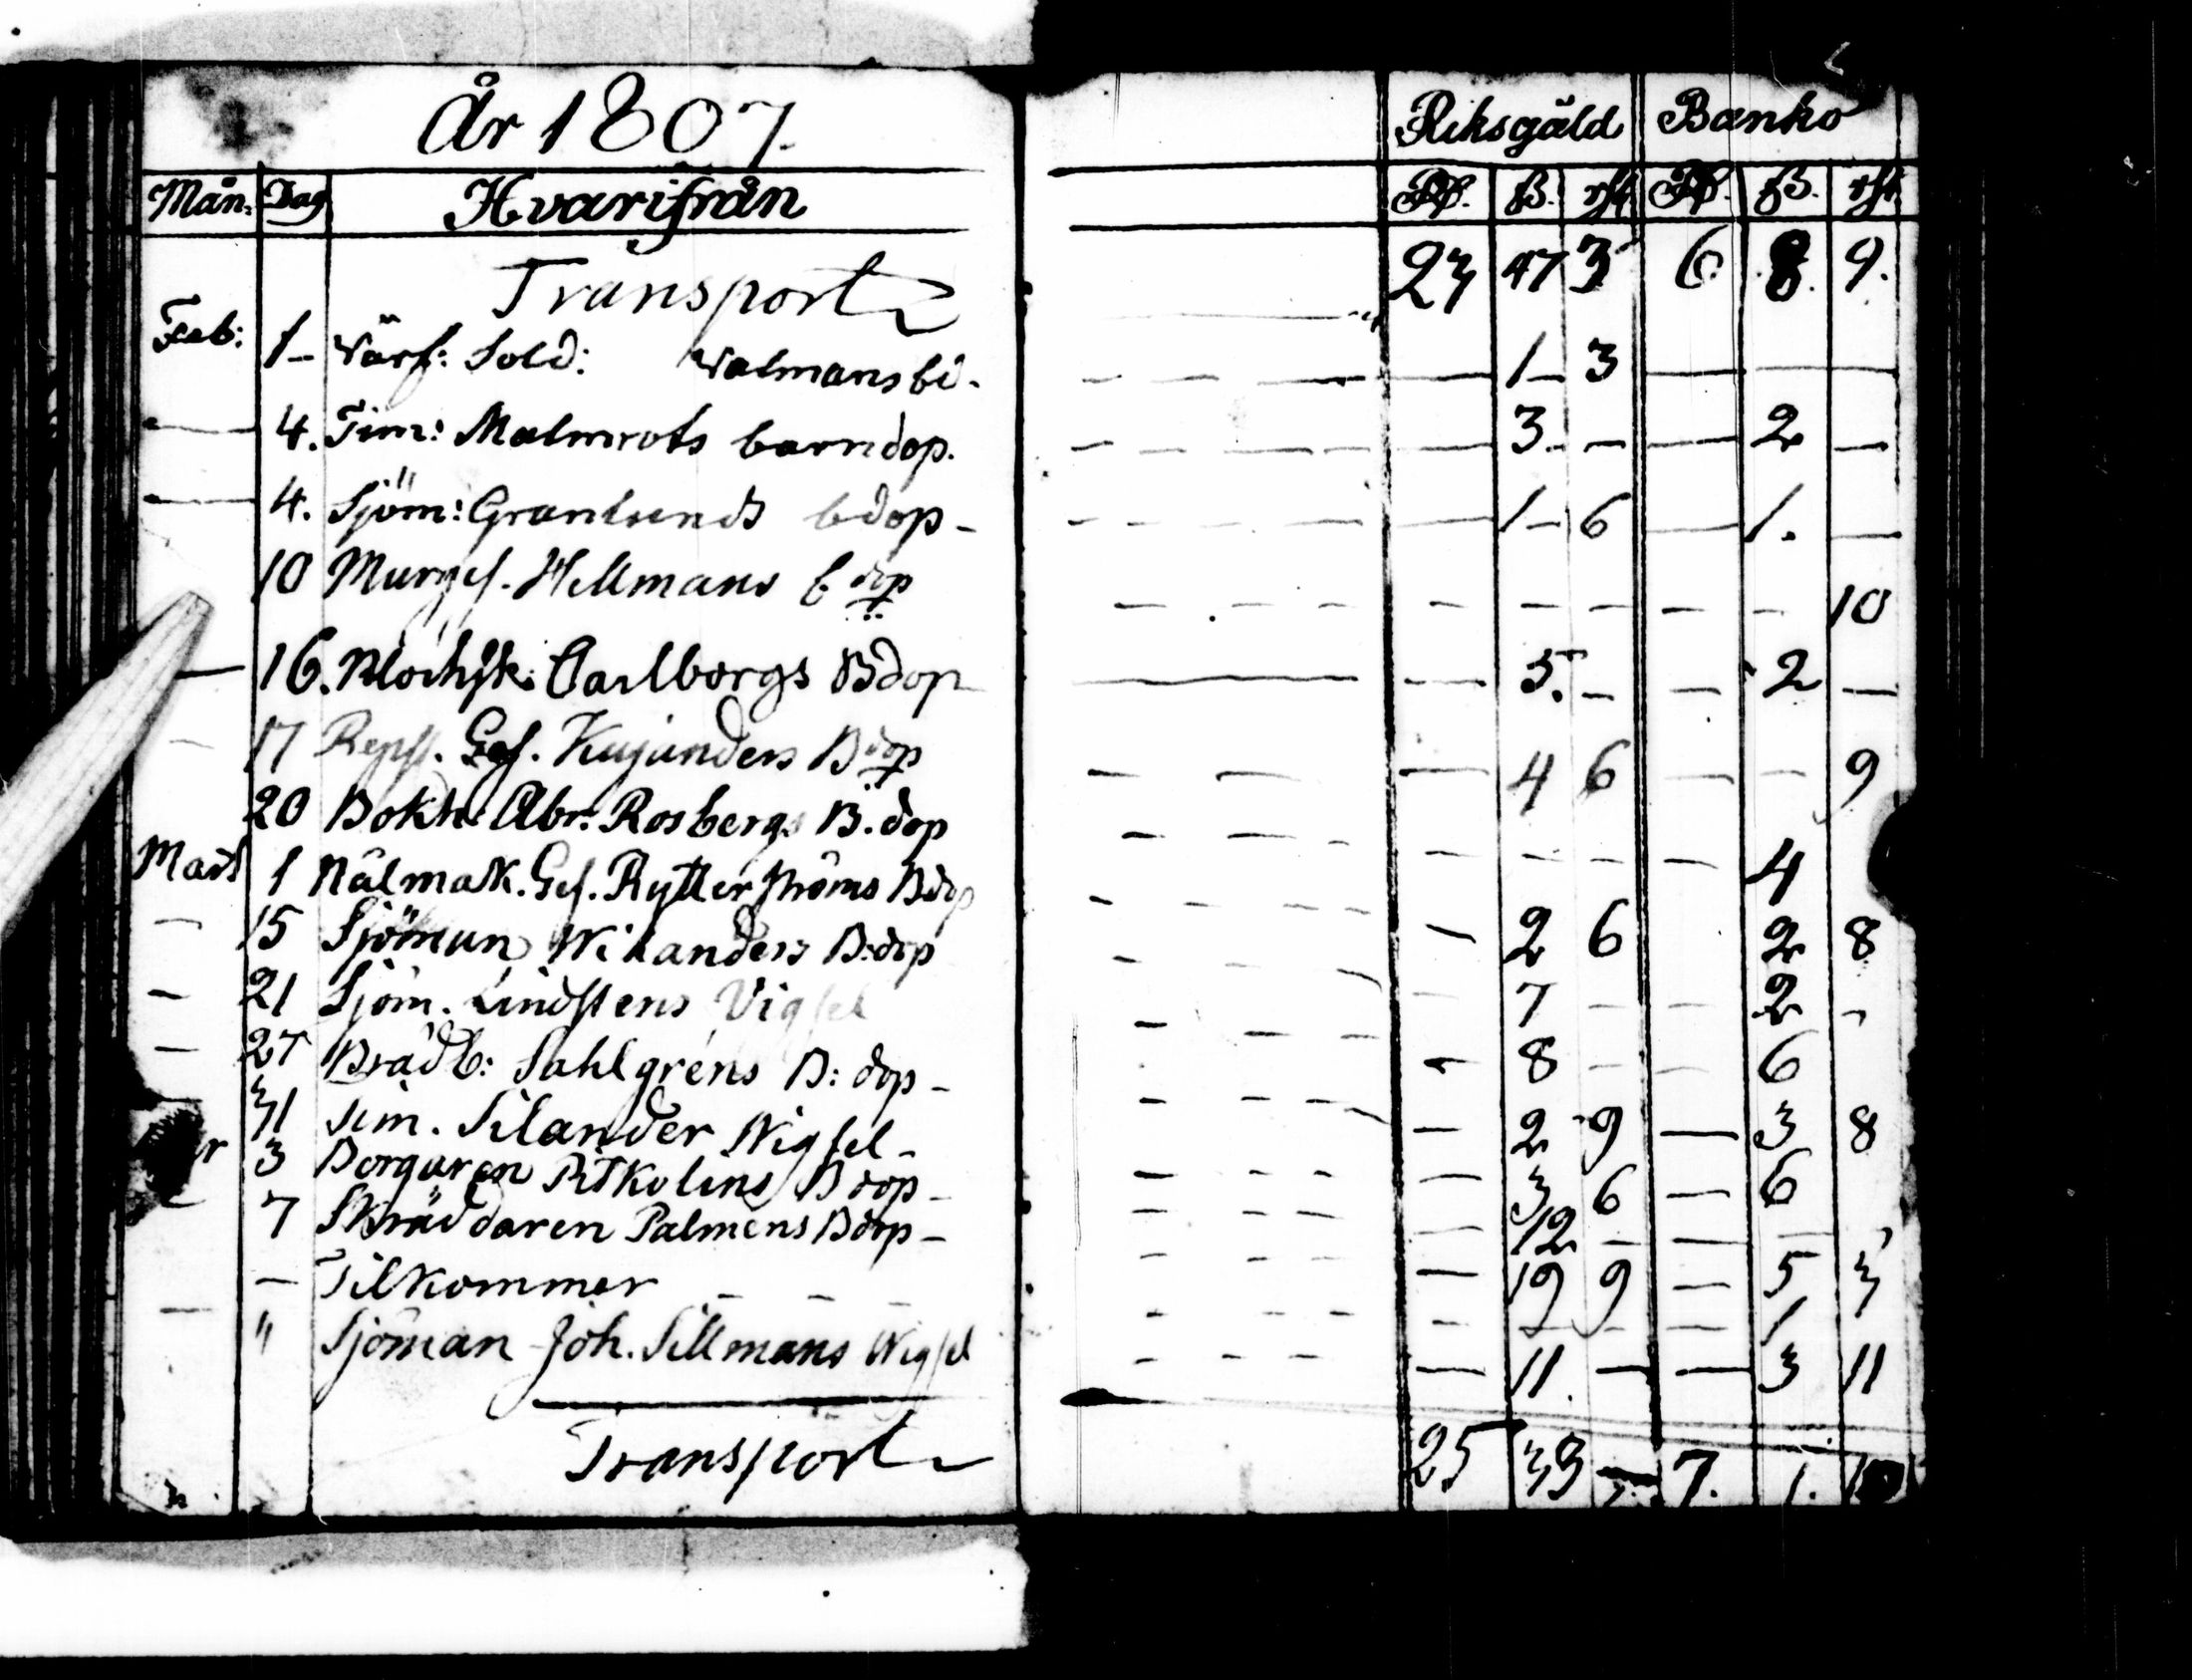 År 1807. Riksgäld Banko
Mån. Dag Hvarifrån Rd. ß. rst. Rd. ß. rst.
Transport 23 47 3 6 8. 9.
Feb: 1 – Värf: Sold: Walmans bd. – – – 1 – 3 –
— 4. Tim: Malmrots barndop. – – – 3. – – 2 –
— 4. Sjöm: Granlunds bdop – – – – 1 – 6 – 1. –
10 Murges. Hellmans b dop – – – – – – – – 10
— 16. Klocksk. Carlborgs Bdop – – 5. – – 2 –
– 17 Repsl. Ges. Kujanders B dop – – – 4 6 – – 9
20 Bokh. Abr. Rosbergs B. dop – – – – – – – 4
Mars 1 Nålmak. Ges. Rytterströms Bdop – – – – 2 6 2 8
– 15 Sjöman Wikanders B:dop – – – – 7 – – 2 –
– 21 Sjöm. Lindstens Vigsel – – – – 8 – – 6
– 27 Brädb: Sahlgréns B: dop – – – – – 2 9 — 3 8
31 Tim. Silander Wigsel – – – – – 3 6 – 6
3 Borgaren Pitkolins B dop – – – – – 12 – – –
7 Skräddaren Palmens Bdop – – – – – 19 9 – 5 3
– Tilkommer – – – – – – – – – – 1
– " Sjöman Joh. Sillmans Wigsel – – – – 11. – – 3 11
Transport 25 33 – 7. 1.